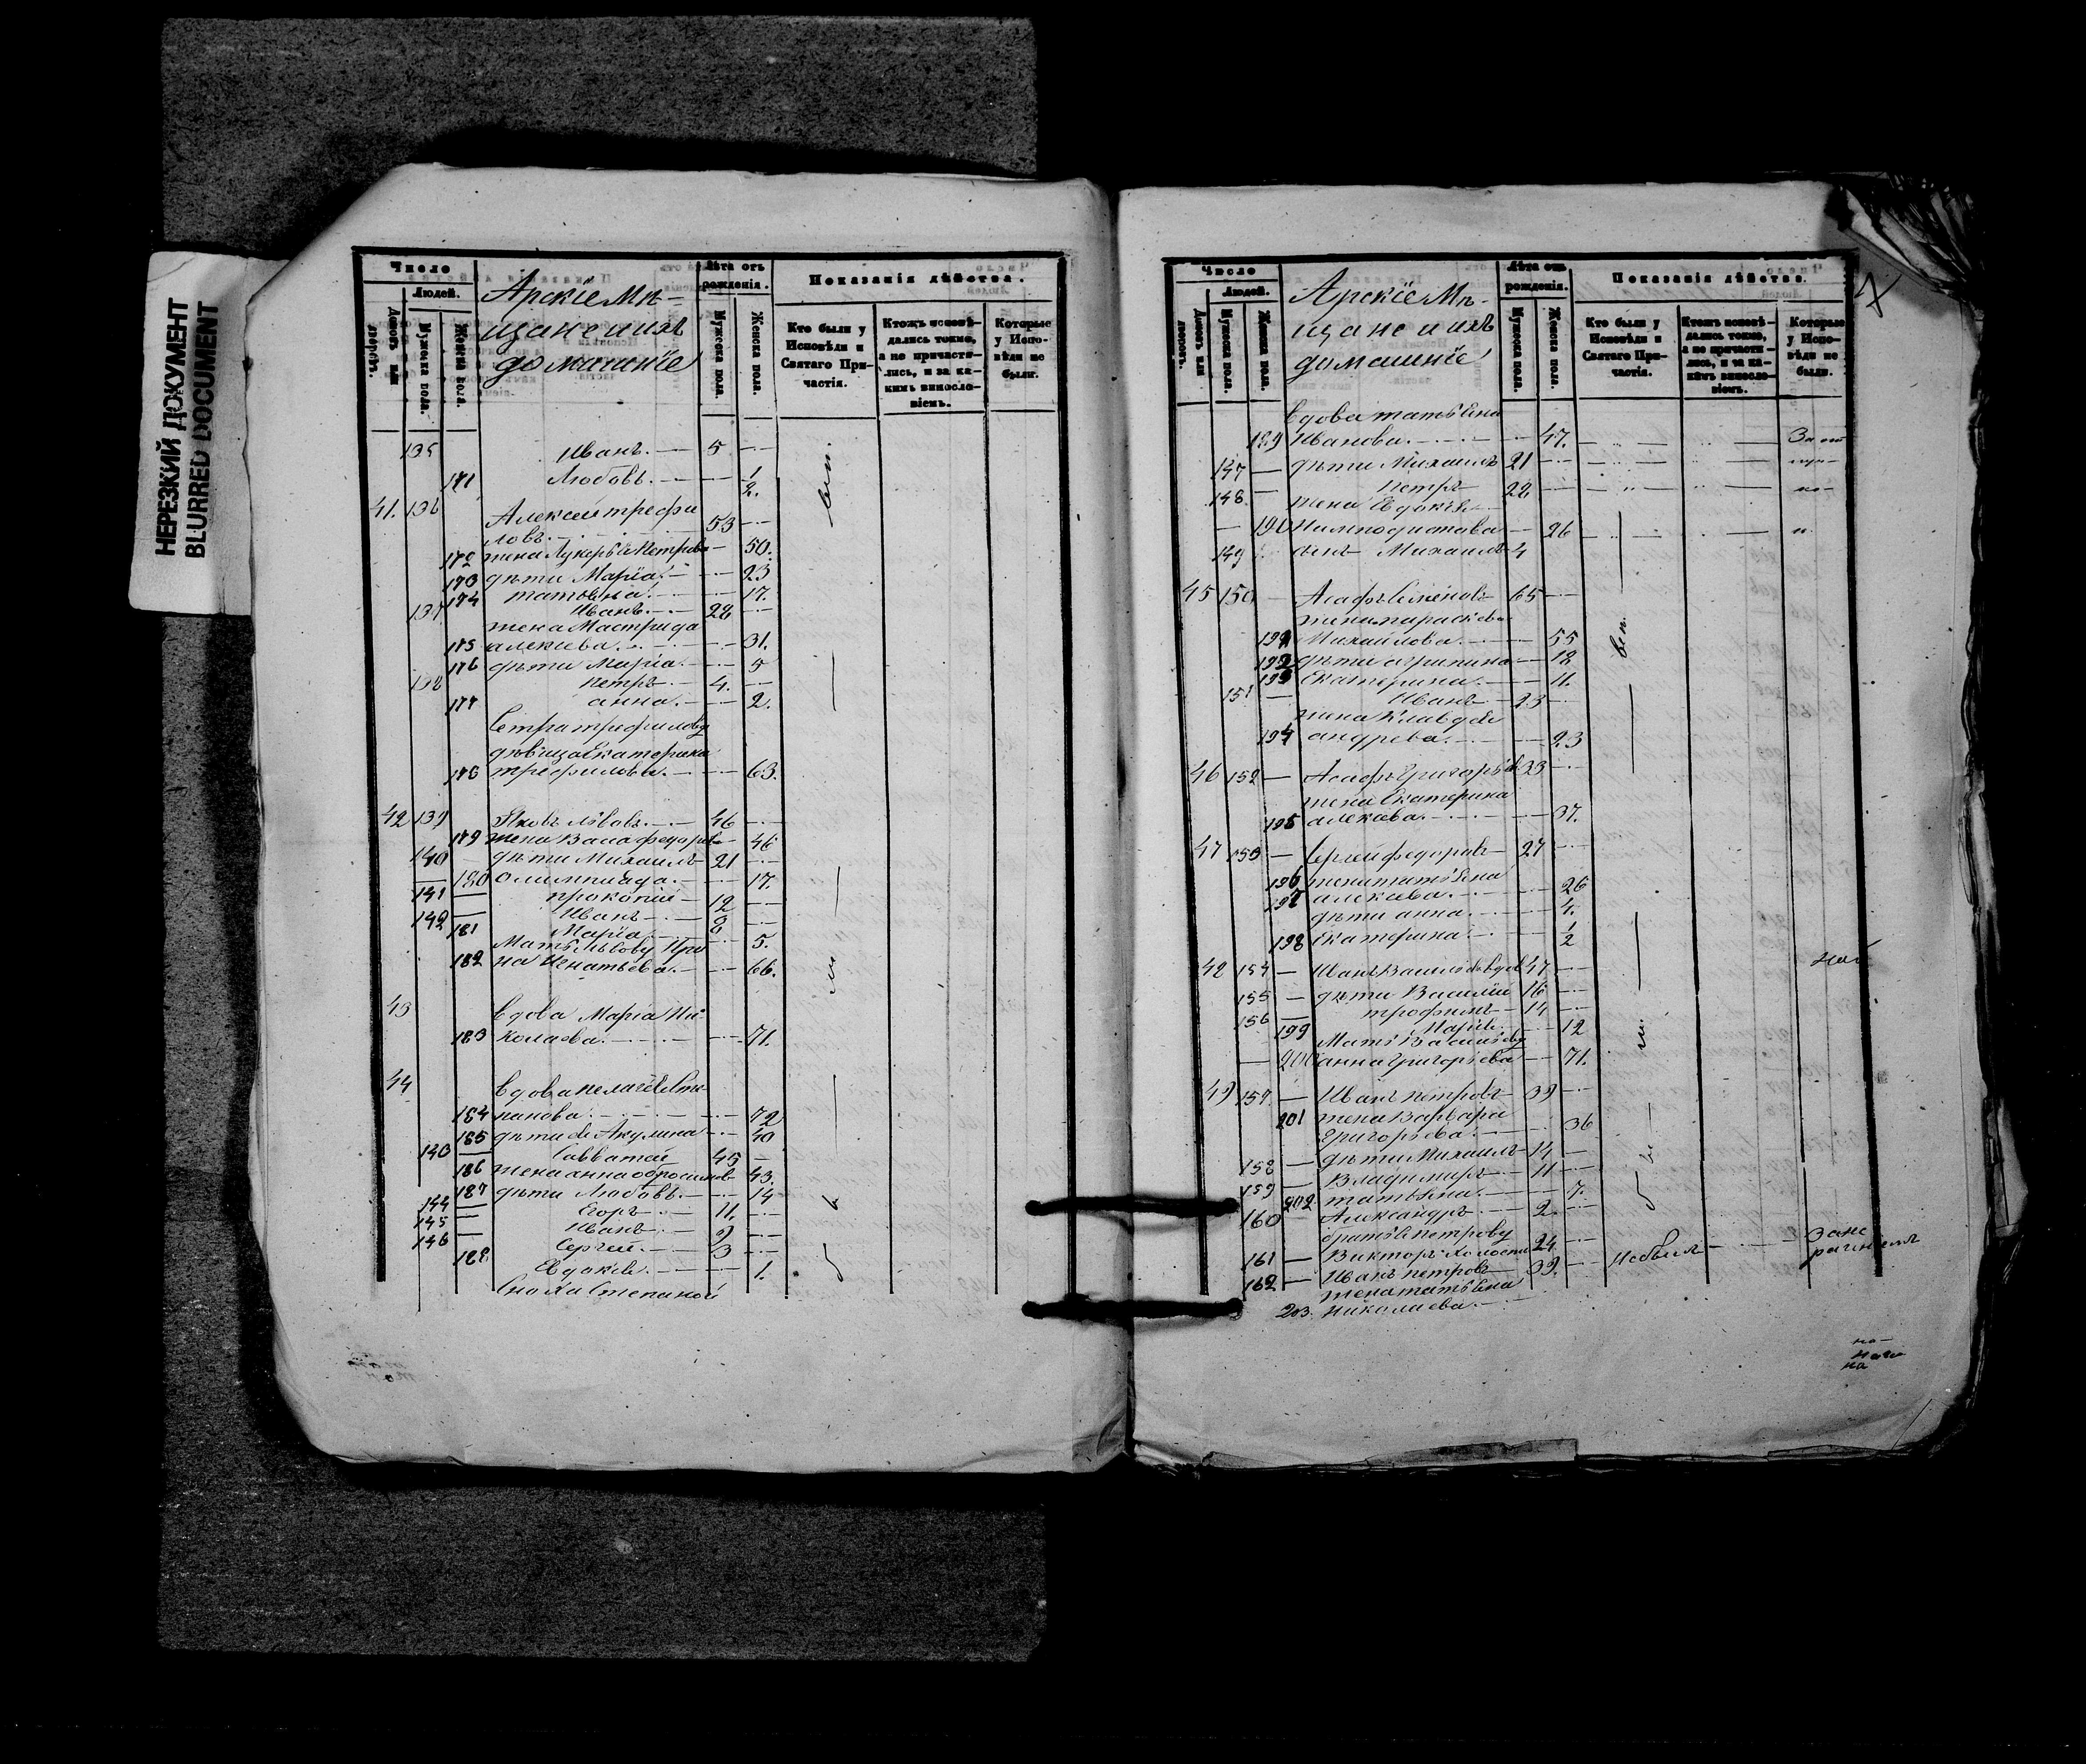 НЕРЕЗКИЙ ДОКУМЕНТ
BLURRED DOCUMENT
Число
Людей.
Домовъ или дворовъ.
Мужеска пола.
Женска пола.
Арскіе Мѣ-
щане и ихъ
домашніе
Лѣта отъ рожденія.
Мужеска пола.
Женска пола.
Показанія дѣйства.
Кто были у Исповѣди и Святаго Причастія.
Ктожъ исповѣдались токмо, а не причастились, и за какимъ винословіемъ.
Которые у Исповѣди не были.
135 Иванъ. 5
171 Любовь. 1/2.
41. 136 Алексей Трефи
ловъ. 53
172 жена Лукерья Петрова 50.
173 дѣти Марія. 23
174 татьяна. 17.
137 Иванъ. 28
жена
175 алексѣева. 31.
176 дѣти Марія. 5
138 петръ 4.
177 анна. 2.
Сестра трефилову
дѣвица Екатерина
178 трефилова. 63.
42 139 Яковъ Львовъ. 46
179 жена Васса федорова 46
140 дѣти Михаилъ 21
180 олимпиада. 17.
141 прокопій 12
142 Иванъ 8
181 Марія. 5.
Мать Львову Ири
182 на Игнатьева. 66.
43 вдова Марія Ни-
183 колаева. 71.
44 вдова пелагея Сте
184 панова. 72
185 дѣти ея Акулина 40
143 Савватей 45
186 жена анна 43.
187 дѣти Любовь. 14
144 Егоръ 11.
145 Иванъ 9
146 Сергей. 3
188 Евдокія 1.
Сноха Степаной
Число
Людей.
Домовъ или дворовъ.
Мужеска пола.
Женска пола.
Арскіе Мѣ-
щане и ихъ
домашніе
Лѣта отъ рожденія.
Мужеска пола.
Женска пола.
Показанія дѣйства.
Кто были у Исповѣди и Святаго Причастія.
Ктожъ исповѣдались токмо, а не причастились, и за какимъ винословіемъ.
Которые у Исповѣди не были.
вдова татьяна
189 Иванова. 47.
147 дѣти Михаилъ 21
148. петръ 28
жена Евдокія
190 26
149 сынъ Михаилъ 4
45 150 Асафъ Семеновъ 65
жена параскева
191 Михайлова. 55
192 дѣти агрипина 12
193 Екатерина. 11.
151 Иванъ 23
жена Клавдея
194 андреева. 23
46 152 Асафъ Григорьевъ 33
жена Екатерина
195 алексѣева. 37.
47 153 Сергей федоровъ 27
196 жена татьяна
197 алексѣева. 26
дѣти анна. 4.
198 Екатерина. 1/2
48 154 Иванъ Васильевъ вдовъ 47
155 дѣти Василій 16
156 трофимъ 14
199 Марія. 12
Мать Васильеву
200 анна Григорьева 71.
49 157. Иванъ петровъ 39
201 жена Варвара
Григорьева. 36
158 дѣти Михаилъ 14
159 Владимиръ 11
202 татьяна. 7.
160 Александръ 2.
братья петрову
161 Викторъ холостъ 24.
162 Иванъ петровъ 39. Небылъ
жена татьяна
203. николаева.